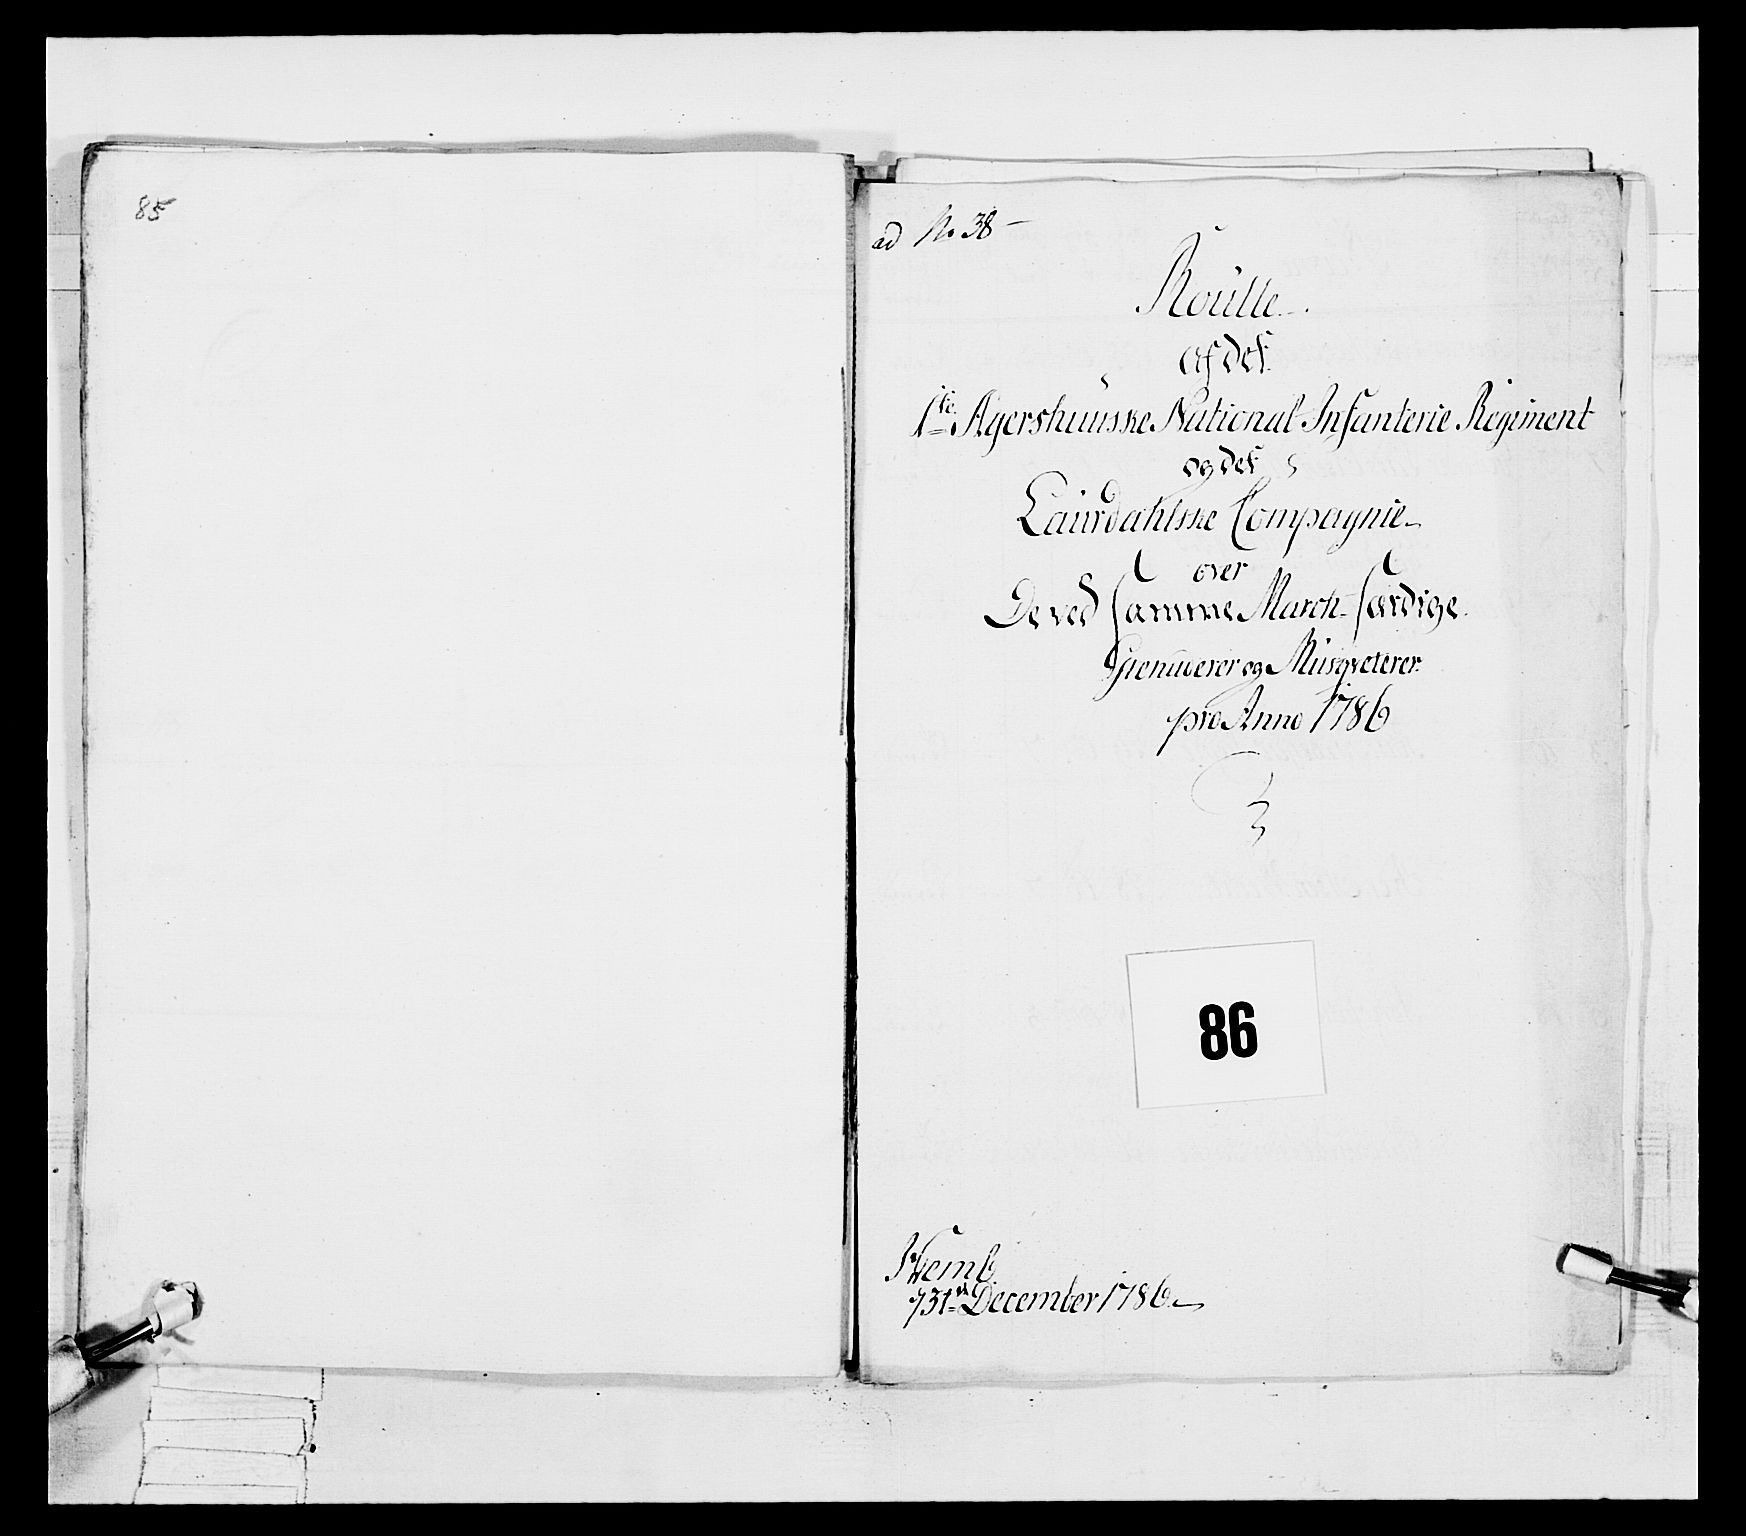 85
ad No 38 -
Roülle.
af det
1te Agershuuske National Infanterie Regiment
og det
Laurdahlske Compagnie
over
De ved samme March-færdige
Grenaderer og Müsqveterer.
pro Anno 1786
86
d 31te December 1786.